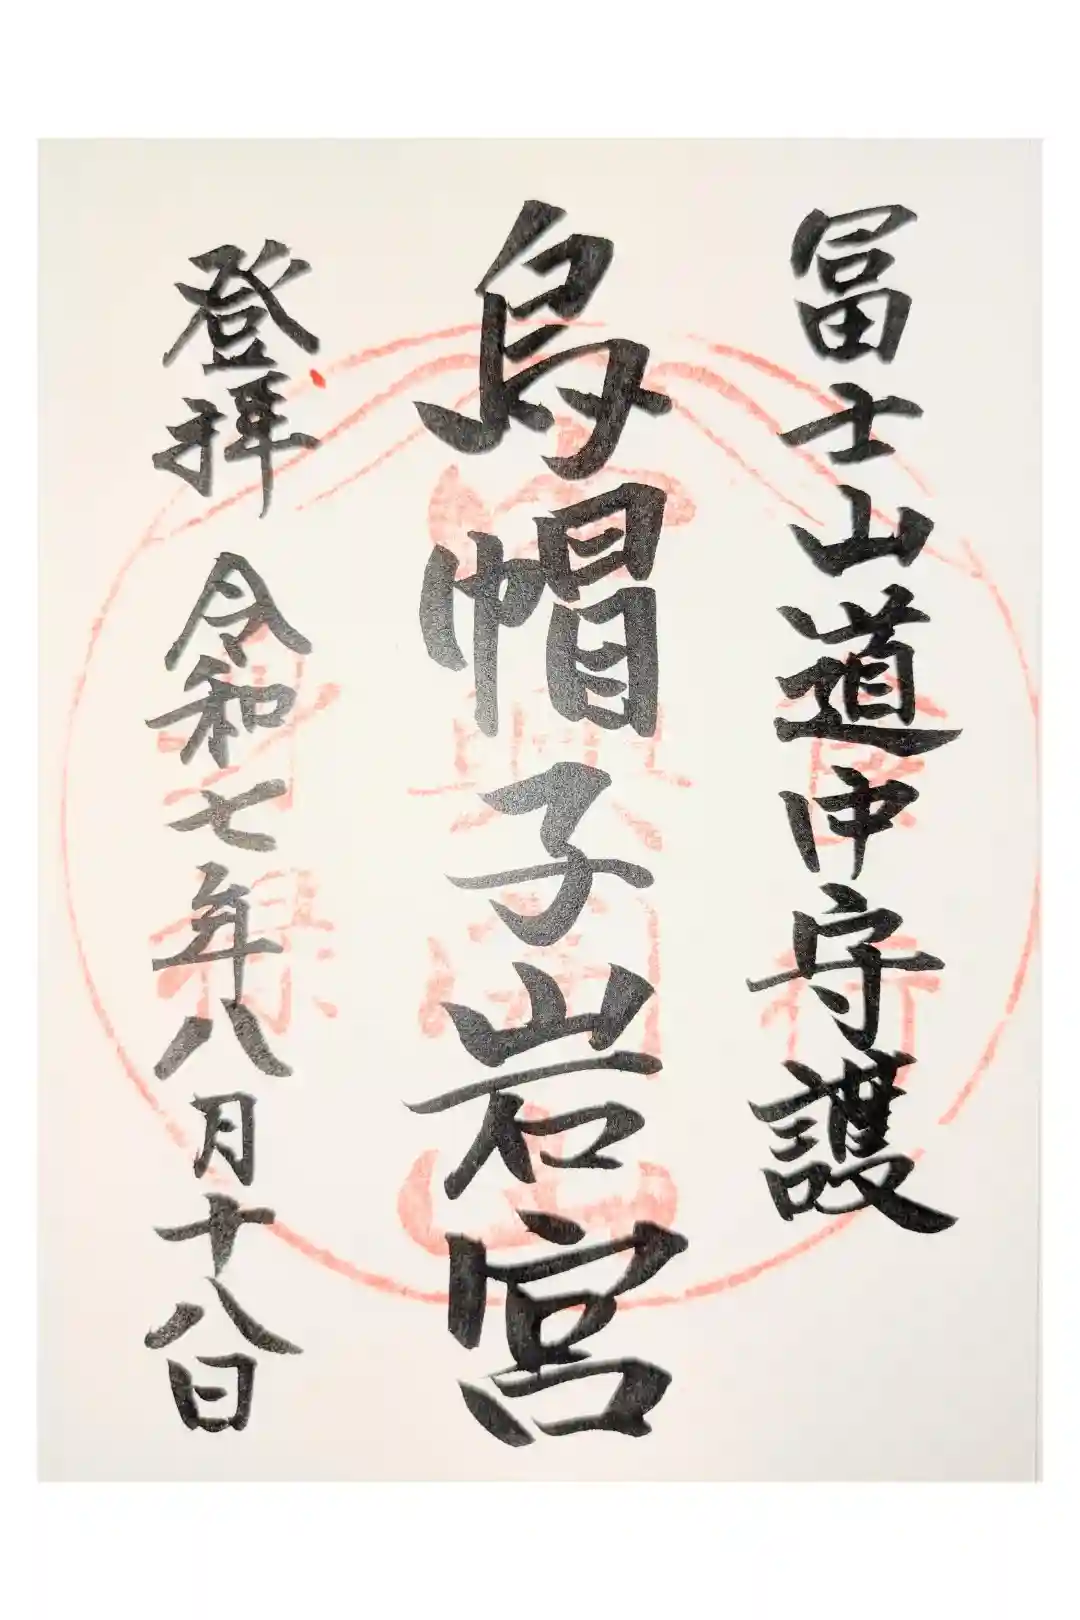 冨士山道中守護
烏帽子岩宮
登拝 令和七年八月十八日